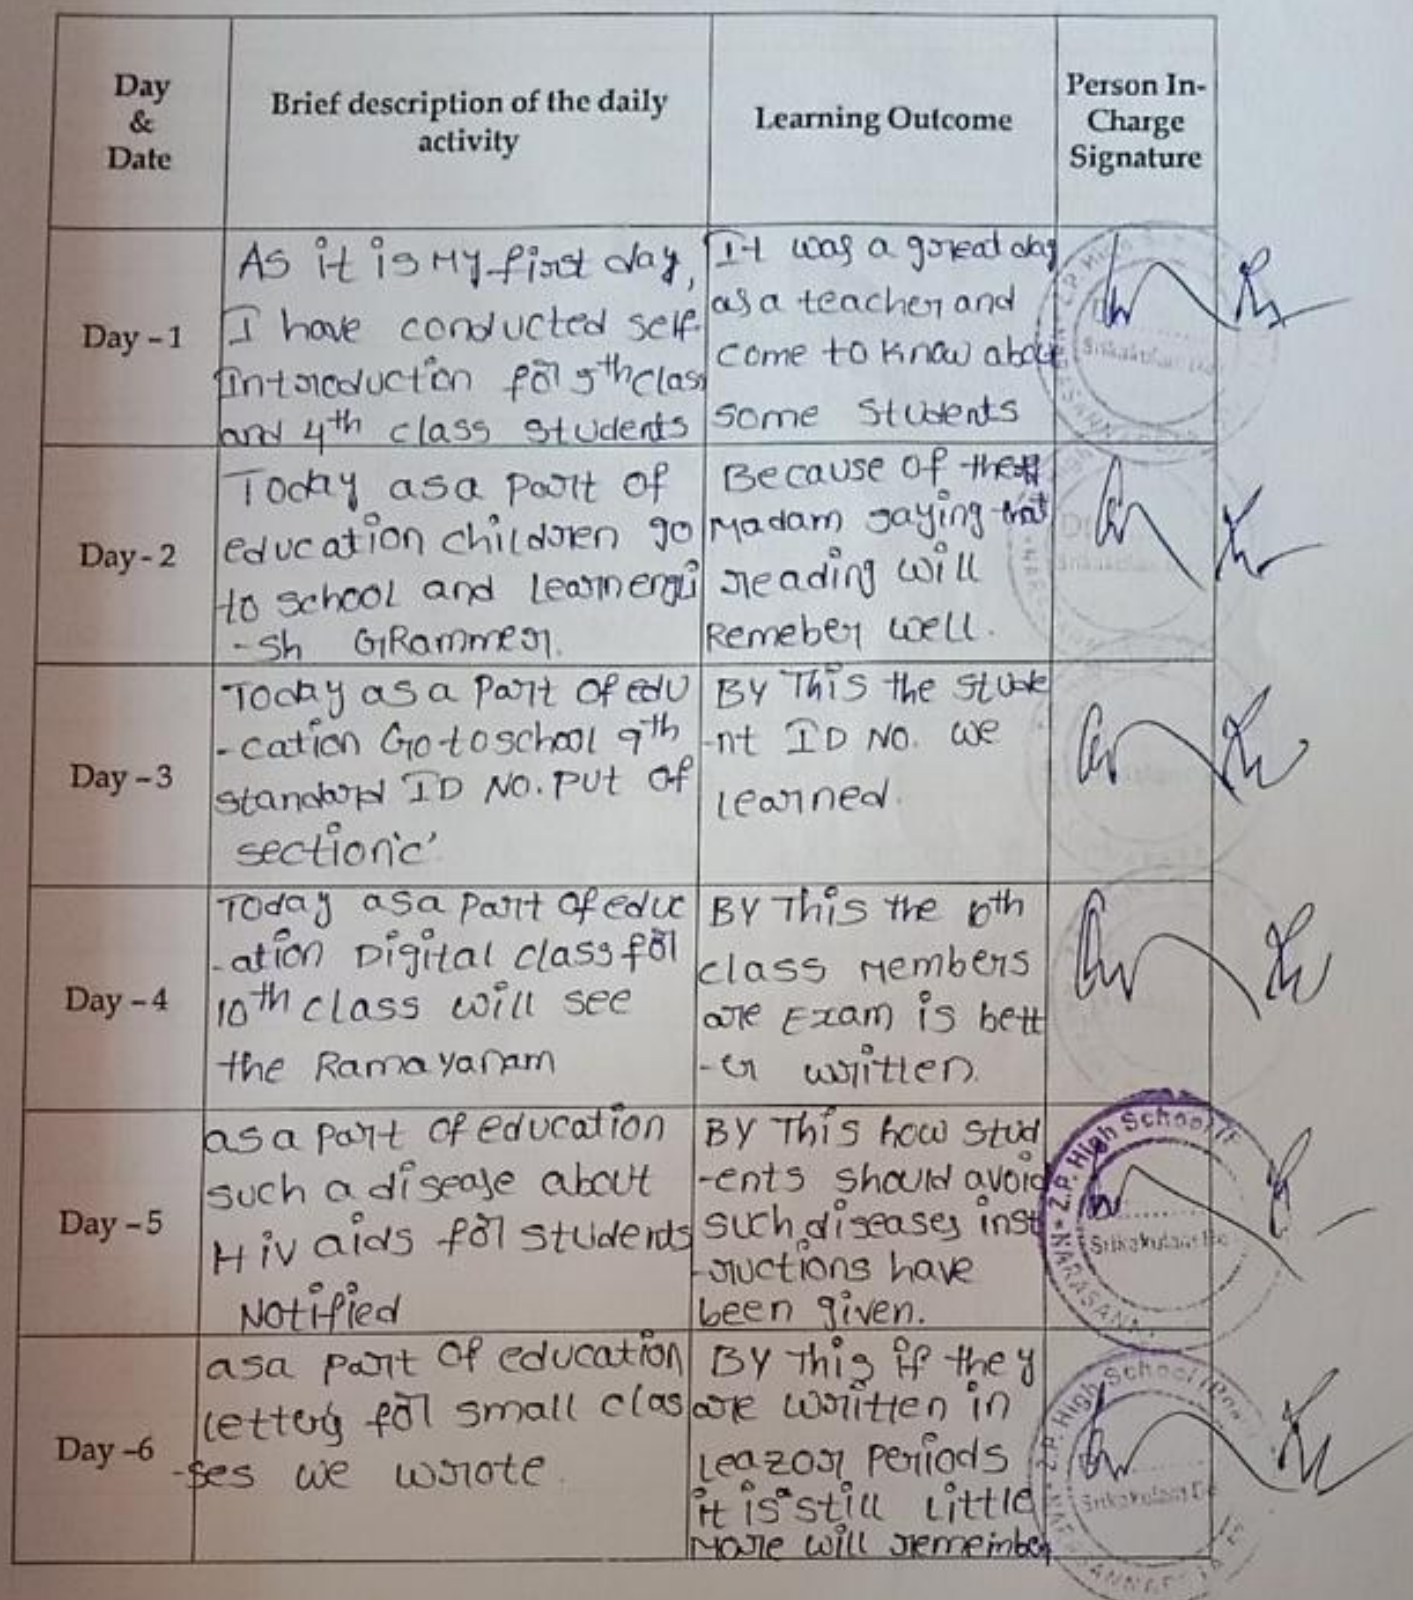 Day
&
Date
Brief description of the daily
activity
Learning Outcome
Person In-
Charge
Signature
Day - 1
As it is My first day,
I have conducted self
Introduction for 5th class
and 4th class students
It was a great day
as a teacher and
come to know about
some students
Day - 2
Today as a part of
education children go
to school and learn engli
-sh GRammer.
Because of the
Madam saying that
reading will
Remeber well.
Day - 3
Today as a part of edu
-cation Go to school 9th
standard ID NO. put of
section 'c'
BY This the stude
-nt ID NO. we
learned.
Day - 4
Today as a part of educ
-ation Digital class for
10th class will see
the Ramayanam
BY This the 10th
class Members
are Exam is bett
-er written.
Day - 5
as a part of education
such a disease about
Hiv aids for students
Notified
BY This how stud
-ents should avoid
such diseases inst
-ructions have
been given.
Z.P. High School
Srikakulam
Day -6
as a part of education
letters for small clas
-ses we wrote.
BY This if they
are written in
leazor periods
it is still little
More will remember
Z.P. High School
Srikakulam